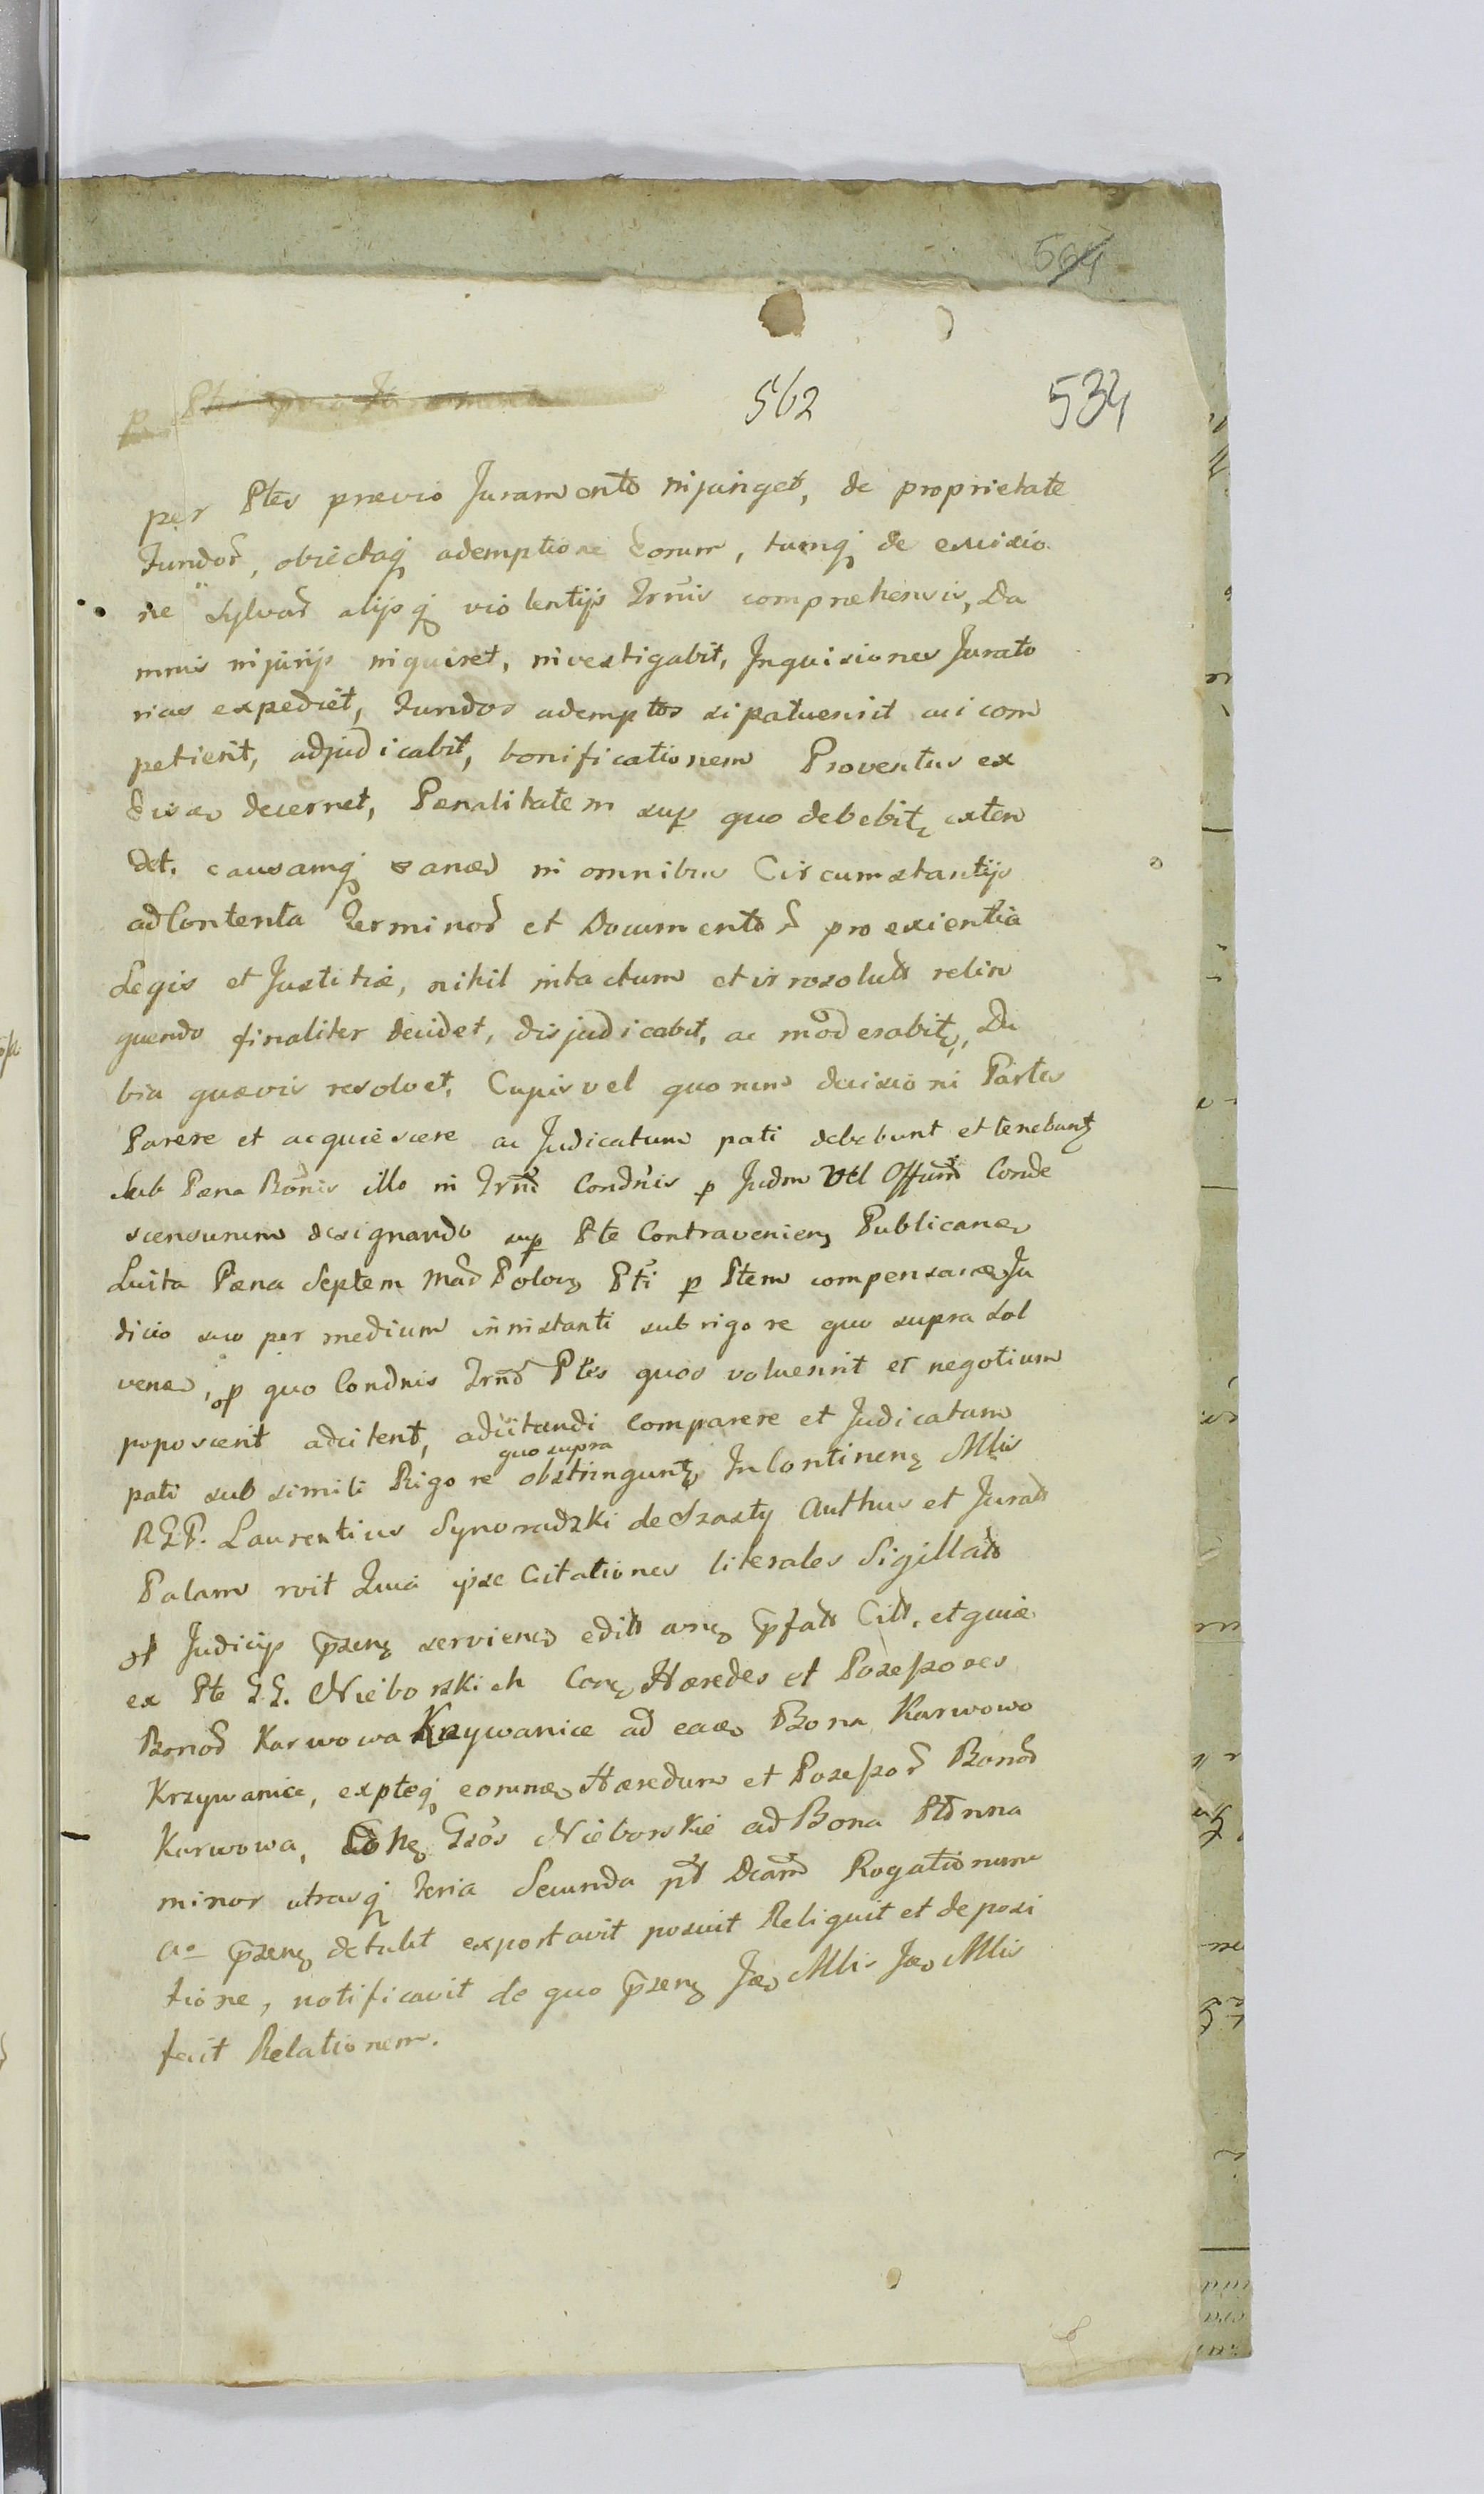 564
562 534
per Ptes prævio Juramento injunget, de proprietate
Fundor, obiectaq ademptione eorum, tumq de excisio
ne Sylvar alijsq violentijs Trnis compræhensis, Da
mnis injurijs inquiret, investigabit, Inquisiones Jurato
rias expediet, Fundos ademptos si patuerint cui com
petierit, adjudicabit, bonificationem Proventus ex
decernet, Pœnalitatem sup quo debebit exten
det. causamq in omnibus Circumstantijs
ad Contenta Terminor et Documentor pro exientia
Legis et Justitiæ, nihil intactum et irresolutt relin
quendo finaliter decidet, disjudicabit, ac moderabit, Du
bia quævis resolvet, Cujus vel quorum decisioni Partes
Parere et acquiescere ac Judicatum pati debebunt et tenebunt
Sub Pæna Bonis illo in Trno Condnis p Judm vel Offum Conde
scensurum designando sup Pte Contravenien Publicanæ
Luita Pæna Septem Mar Polon Pti p Ptem compensanæ Ju
dicio suo per medium in instanti sub rigore quo supra sol
venæ, p quo Condnis Trno Ptes quos voluerint et negotium
poposcerit adcitent, adcitandi comparere et Judicatum
pati sub simili Rigore quo supra obstringunt, In Continen Mlis
RGP. Laurentius Synoradzki de Szasty Authus et Jurats
Palam roit Quia ipse Citationes literales Sigillats
et Judicijs præsen serviens edits ars præfats Cits, et quiæ
ex Pte GG. Nieborskich Con Hæredes et Possessores
Bonor Karwowa Krzywanice ad eaæ Bona Karwowo
Krzywanice, expteq eorumæ Hæredum et Possessor Bonor
Karwowa, Gsos Nieborskie ad Bona
minor utrasq Feria Secunda pt Dcam Rogationum
Ao præsen detulit exportavit posuit Reliquit et deposi
tione, notificavit de quo præsen Jæ Mlis Jæ Mlis
fecit Relationem.